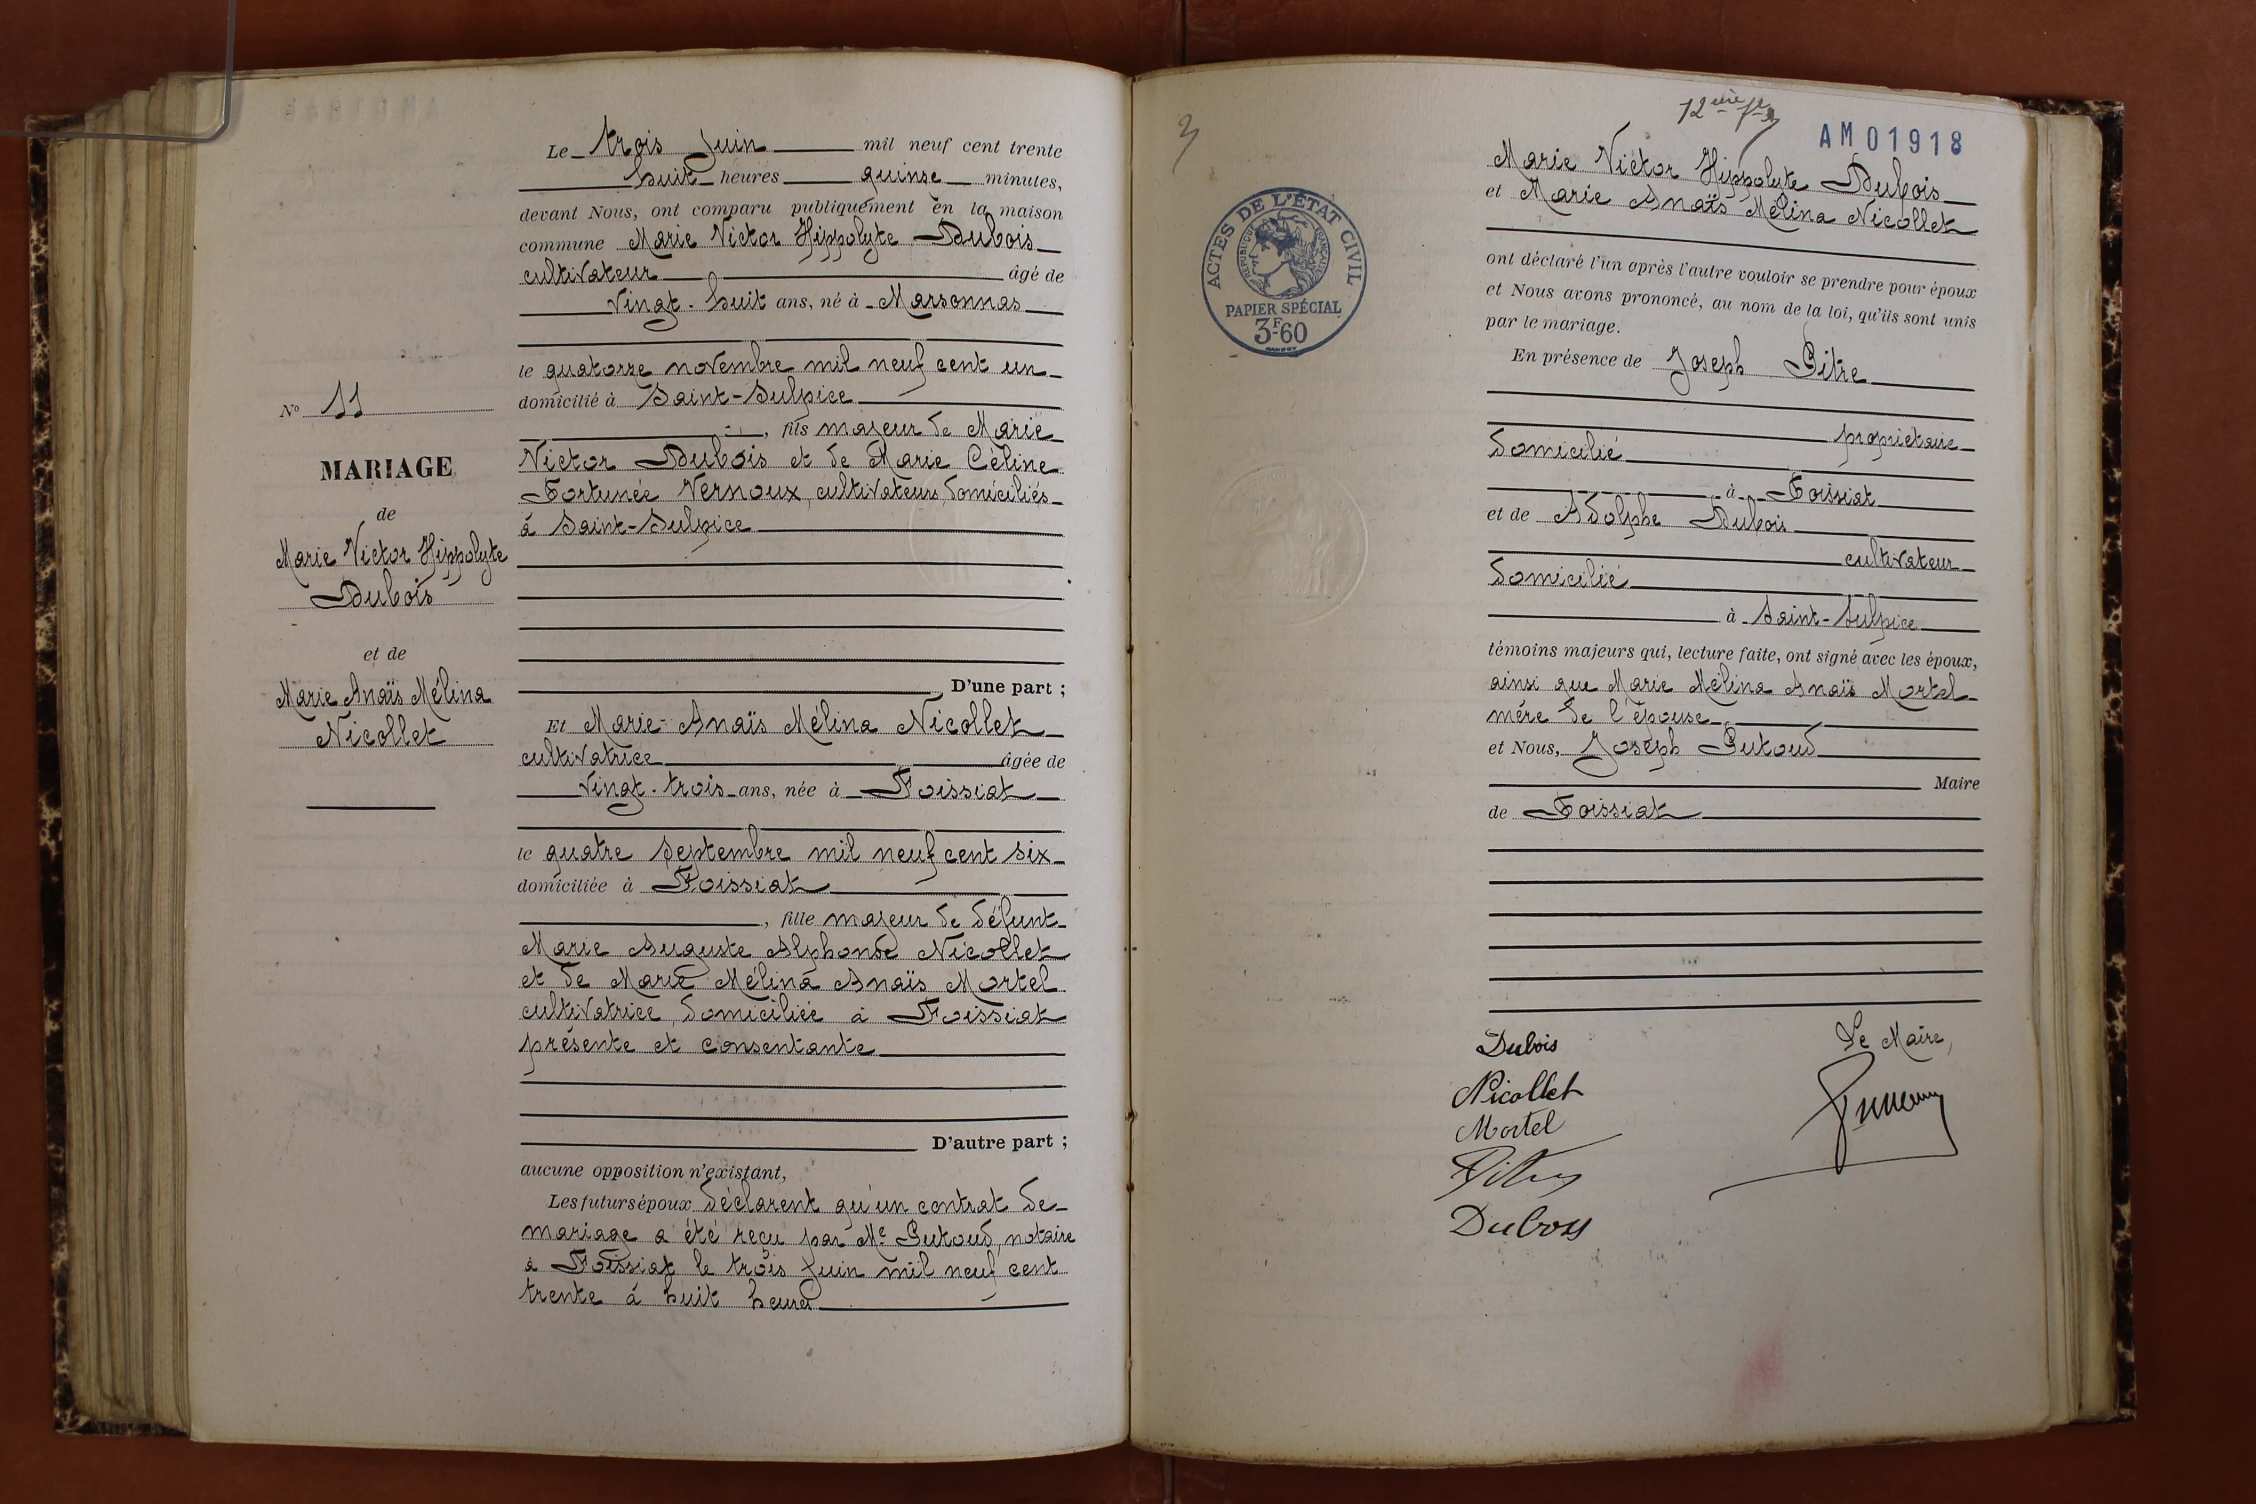 Nº 11
MARIAGE
de
Marie Victor Hippolyte
Dubois
et de
Marie Anaïs Mélina
Nicollet
Le trois Juin mil neuf cent trente
huit heures quinze minutes,
devant Nous, ont comparu publiquement en la maison
commune Marie Victor Hippolyte Dubois
cultivateur âgé de
vingt-huit ans, né à Marsonnas
le quatorze novembre mil neuf cent un
domicilié à Saint-Sulpice
, fils majeur de Marie
Victor Dubois et de Marie Céline
Fortunée Vernoux, cultivateurs, domiciliés
à Saint-Sulpice
D'une part ;
Et Marie-Anaïs Mélina Nicollet
cultivatrice âgée de
vingt-trois ans, née à Foissiat
le quatre septembre mil neuf cent six
domiciliée à Foissiat
, fille majeur de défunt
Marie Auguste Alphonse Nicollet
et de Marie Mélina Anaïs Mortel
cultivatrice, domiciliée à Foissiat
présente et consentante
D'autre part ;
aucune opposition n'existant,
Les futurs époux déclarent qu'un contrat de
mariage a été reçu par Me Putoud, notaire
à Foissiat le trois Juin mil neuf cent
trente à huit heures
3
12
AM01918
ACTES DE L'ÉTAT CIVIL
RÉPUBLIQUE FRANÇAISE
PAPIER SPÉCIAL
3F60
Marie Victor Hippolyte Dubois
et Marie Anaïs Mélina Nicollet
ont déclaré l'un après l'autre vouloir se prendre pour époux
et Nous avons prononcé, au nom de la loi, qu'ils sont unis
par le mariage.
En présence de Joseph Pitre
propriétaire
domicilié
à Foissiat
et de Adolphe Dubois
cultivateur
domicilié
à Saint-Sulpice
témoins majeurs qui, lecture faite, ont signé avec les époux,
ainsi que Marie Mélina Anaïs Mortel
mère de l'épouse
et Nous, Joseph Putoud
Maire
de Foissiat
Dubois
Nicollet
Mortel
Dubois
Le Maire,